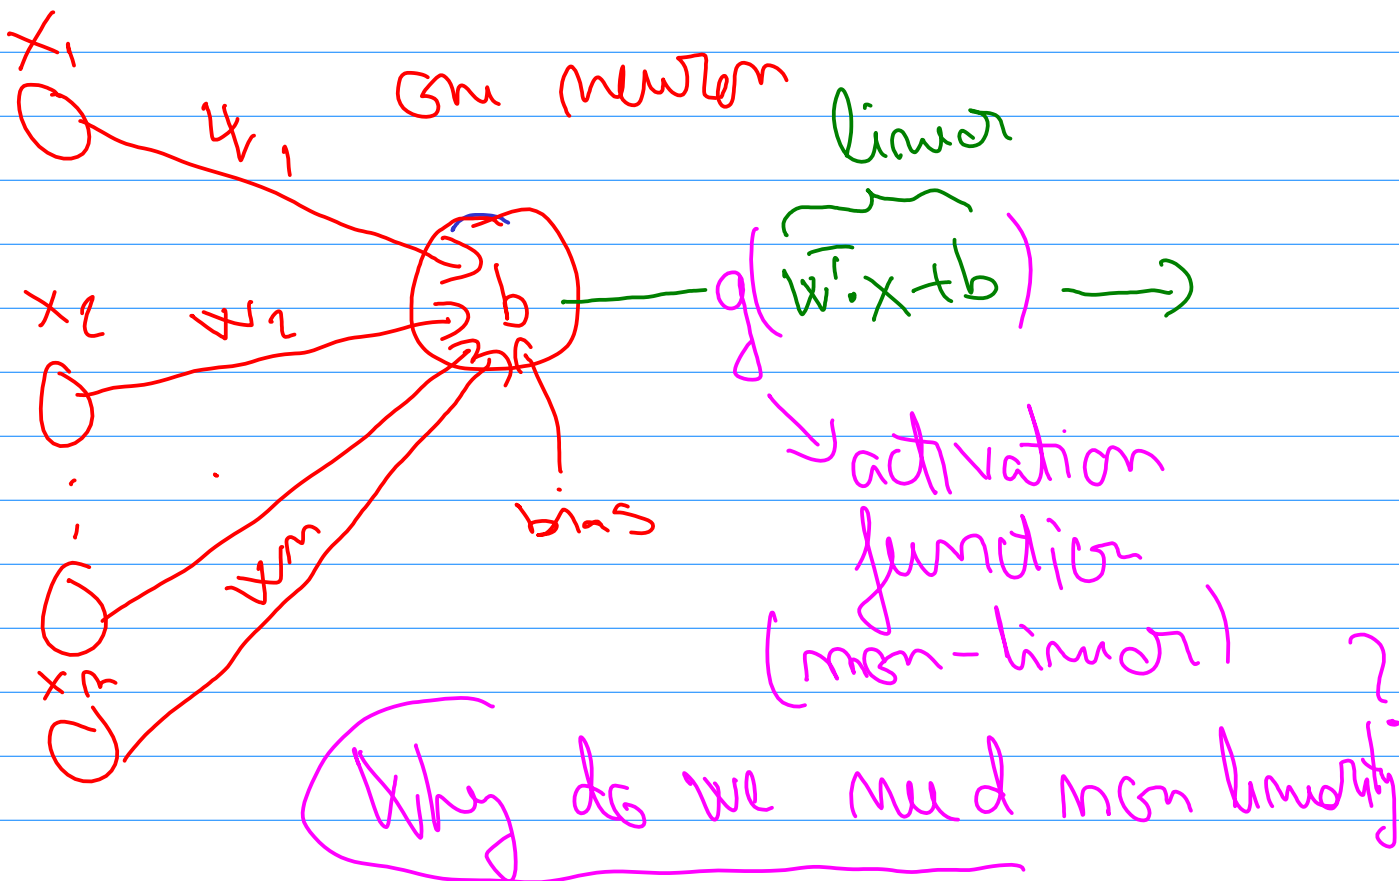 x1
One neuron
w1
linear
x2
w2
b
g(wᵀ.x+b)
activation
bias
function
wn
(non-linear)
xn
?
Why do we need non linearity